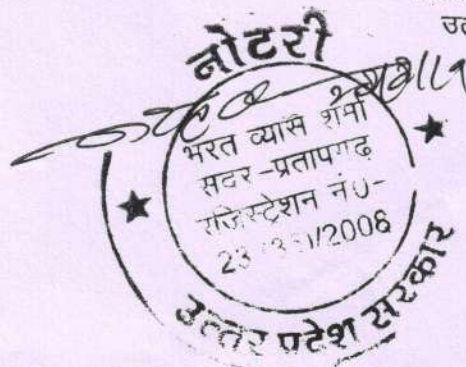 उत
नोटरी
भरत व्यास शर्मा
सदर-प्रतापगढ़
रजिस्ट्रेशन नं०-
23 /2006
उत्तर प्रदेश सरकार